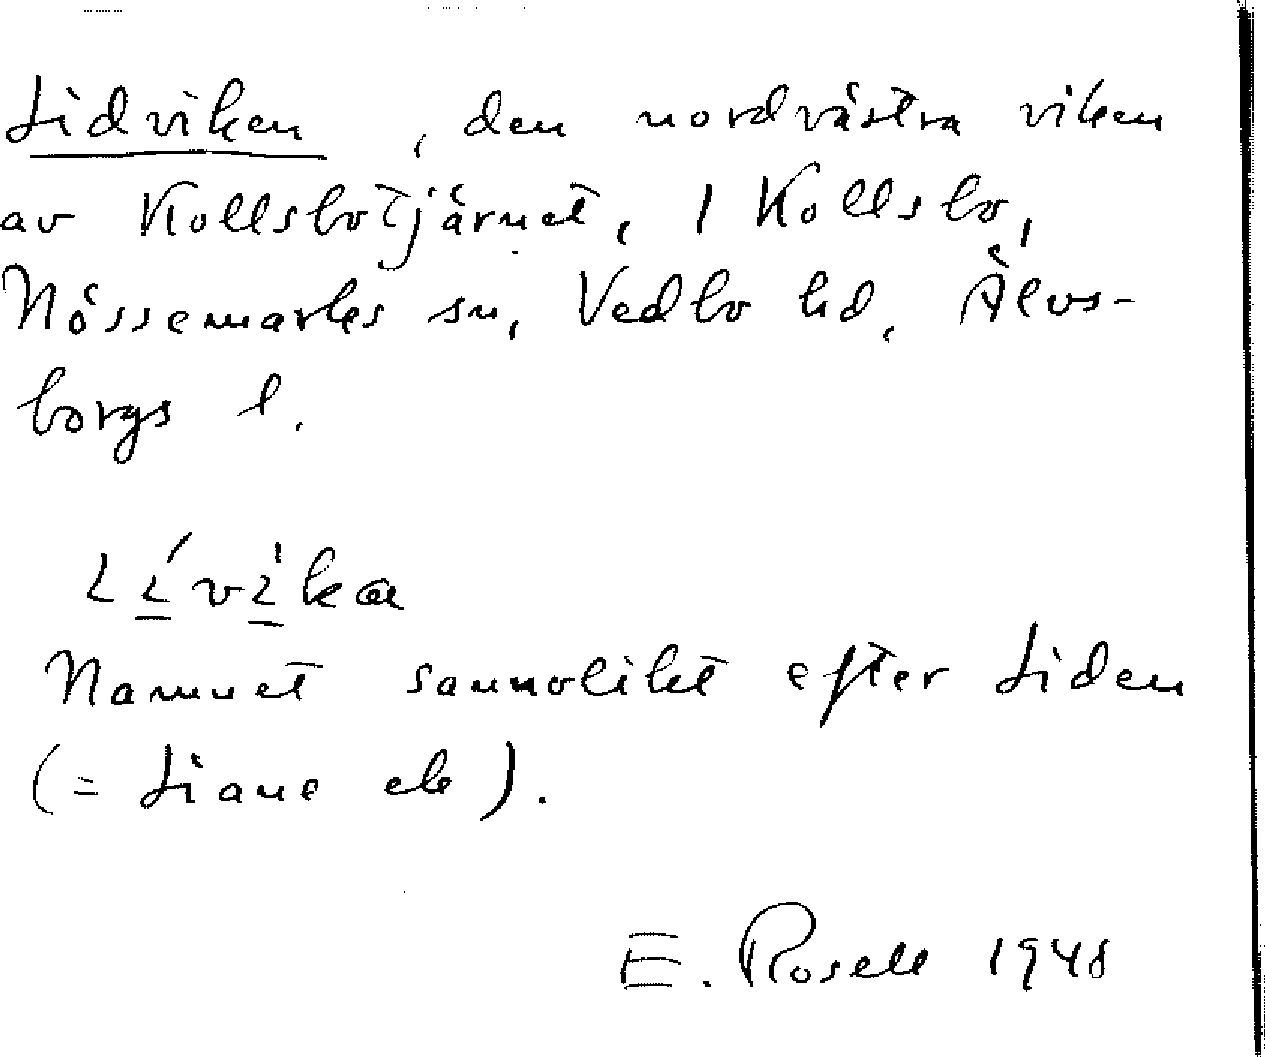 Lidviken, den nordvästra viken
av Kollsbotjärnet, 1 Kollsbo,
Nössemarks sn, Vedbo hd, Älvs-
borgs l.
Lívìka
Namnet sannolikt efter Liden
(= Liane ek).
E. Rosell 1948